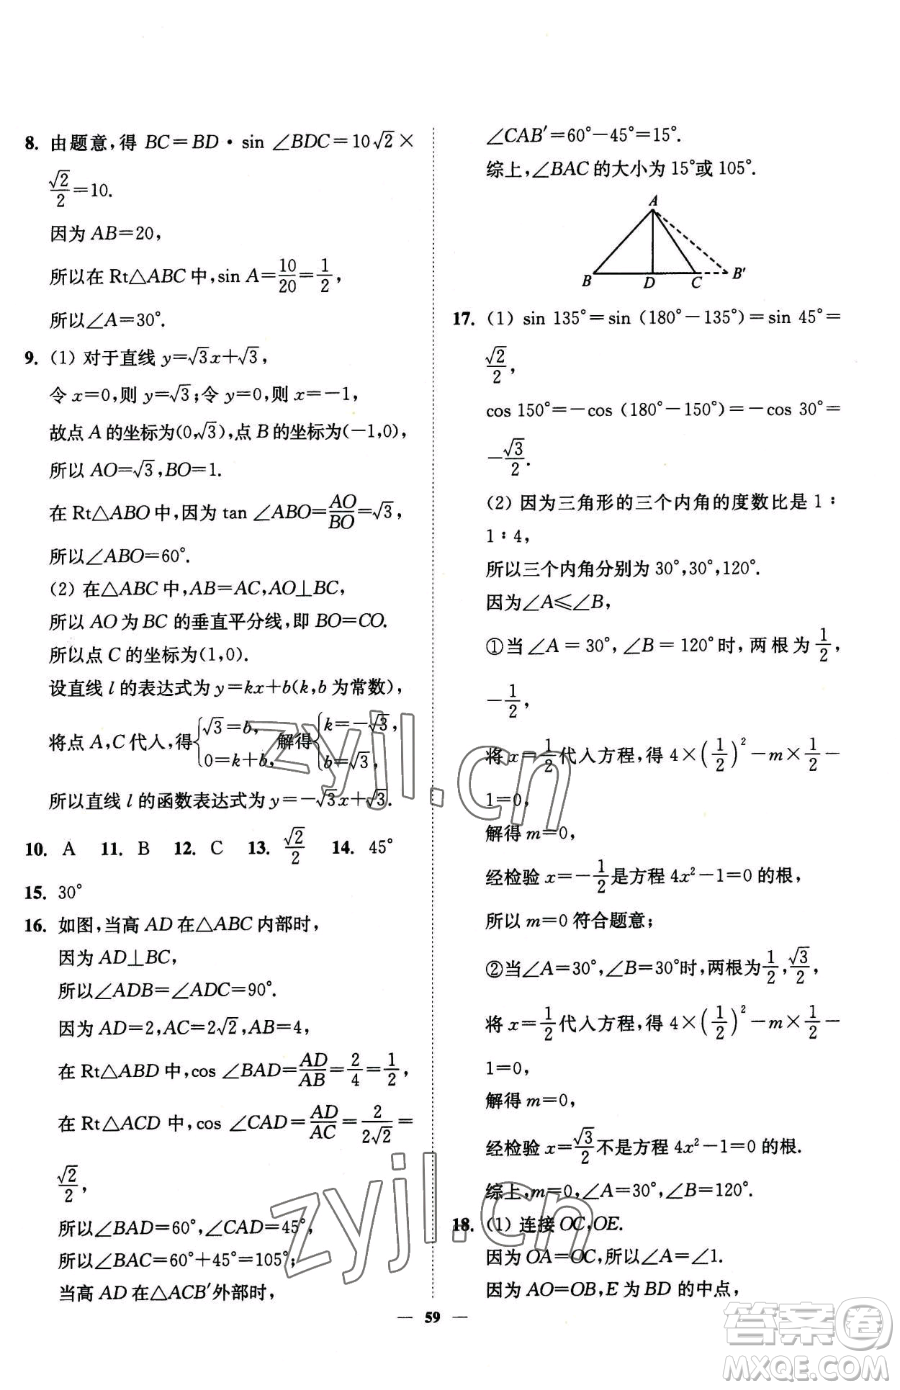 8. 由题意,得 BC=BD·sin ∠BDC=10√2×
√2/2=10.
因为 AB=20,
所以在 Rt△ABC 中,sin A=10/20=1/2,
所以∠A=30°.
9. (1) 对于直线 y=√3x+√3,
令 x=0,则 y=√3;令 y=0,则 x=-1,
故点 A 的坐标为(0,√3),点 B 的坐标为(-1,0),
所以 AO=√3,BO=1.
在 Rt△ABO 中,因为 tan ∠ABO=AO/BO=√3,
所以∠ABO=60°.
(2) 在△ABC 中,AB=AC,AO⊥BC,
所以 AO 为 BC 的垂直平分线,即 BO=CO.
所以点 C 的坐标为(1,0).
设直线 l 的表达式为 y=kx+b(k,b 为常数),
将点 A,C 代入,得{√3=b, 0=k+b, 解得{k=-√3, b=√3,
所以直线 l 的函数表达式为 y=-√3x+√3.
10. A 11. B 12. C 13. √2/2 14. 45°
15. 30°
16. 如图,当高 AD 在△ABC 内部时,
因为 AD⊥BC,
所以∠ADB=∠ADC=90°.
因为 AD=2,AC=2√2,AB=4,
在 Rt△ABD 中,cos ∠BAD=AD/AB=2/4=1/2,
在 Rt△ACD 中,cos ∠CAD=AD/AC=2/2√2=
√2/2,
所以∠BAD=60°,∠CAD=45°,
所以∠BAC=60°+45°=105°;
当高 AD 在△ACB′外部时,
∠CAB′=60°-45°=15°.
综上,∠BAC 的大小为 15°或 105°.
A
B D C B′
17. (1) sin 135°=sin (180°-135°)=sin 45°=
√2/2,
cos 150°=-cos (180°-150°)=-cos 30°=
-√3/2.
(2) 因为三角形的三个内角的度数比是 1∶
1∶4,
所以三个内角分别为 30°,30°,120°.
因为∠A≤∠B,
①当∠A=30°,∠B=120°时,两根为1/2,
-1/2,
将 x=1/2代入方程,得 4×(1/2)²-m×1/2-
1=0,
解得 m=0,
经检验 x=-1/2是方程 4x²-1=0 的根,
所以 m=0 符合题意;
②当∠A=30°,∠B=30°时,两根为1/2,√3/2,
将 x=1/2代入方程,得 4×(1/2)²-m×1/2-
1=0,
解得 m=0,
经检验 x=√3/2不是方程 4x²-1=0 的根.
综上,m=0,∠A=30°,∠B=120°.
18. (1) 连接 OC,OE.
因为 OA=OC,所以∠A=∠1.
因为 AO=OB,E 为 BD 的中点,
— 59 —
zyjl.cn
zyjl.cn
答案圈
MXQE.COM